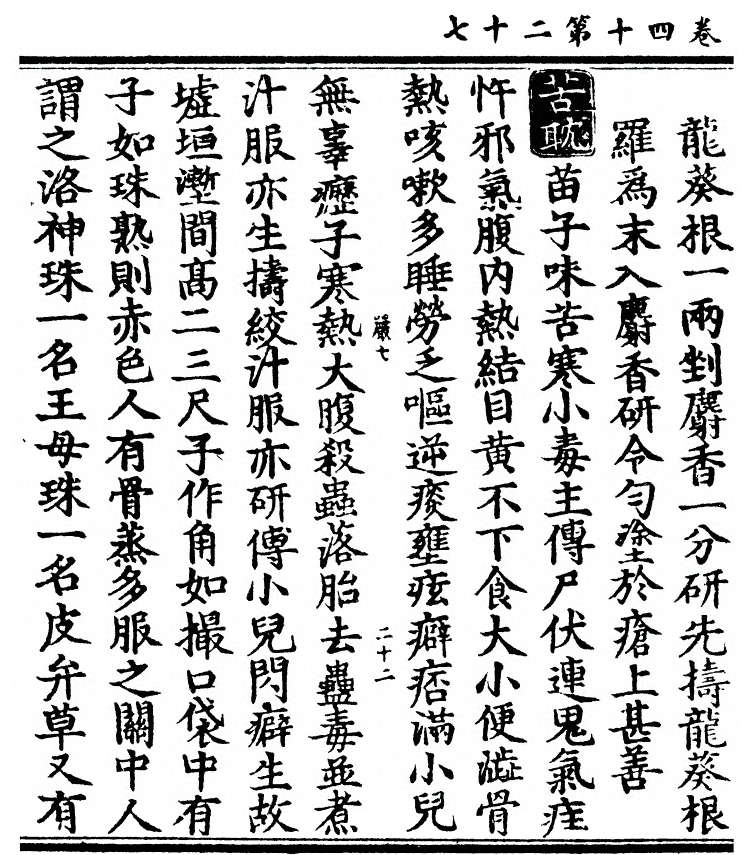 卷四十第二十七
龍葵根一兩剉麝香一分研先擣龍葵根
羅爲末入麝香研令勻塗於瘡上甚善
苦耽苗子味苦寒小毒主傳尸伏連鬼氣疰
忤邪氣腹内熱結目黃不下食大小便澁骨
熱咳嗽多睡勞乏嘔逆痰壅痃癖痞滿小兒
嚴七
二十二
無辜癧子寒熱大腹殺蟲落胎去蠱毒並煮
汁服亦生擣絞汁服亦研傅小兒閃癖生故
墟垣壍間髙二三尺子作角如撮口袋中有
子如珠熟則赤色人有骨蒸多服之關中人
謂之洛神珠一名王母珠一名皮弁草又有